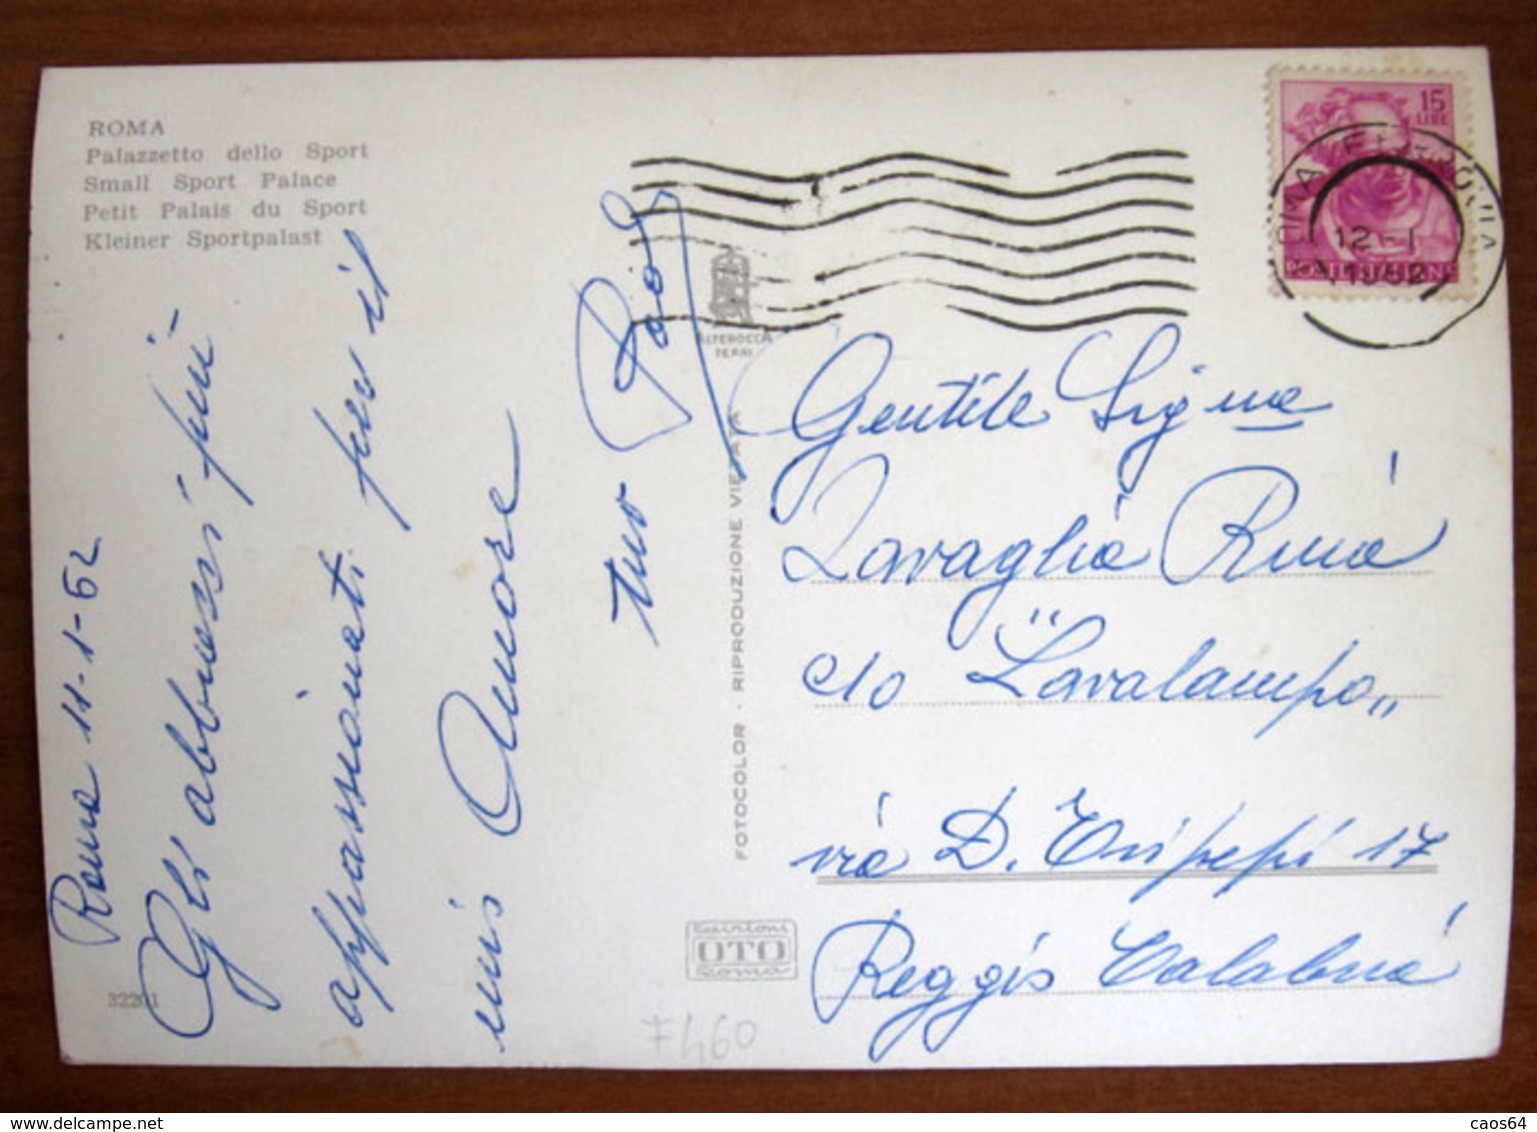 ROMA
Palazzetto dello Sport
Small Sport Palace
Petit Palais du Sport
Kleiner Sportpalast
Roma 11-1-62
Gli abbracci più
appassionati per il
mio Amore
tuo Paolo
32201
ALTEROCCA
TERNI
FOTOCOLOR - RIPRODUZIONE VIETATA
Edizioni
OTO
Roma
F460
15
LIRE
POSTE ITALIANE
12-1
1962
Gentile Sig.na
Lavaglia Rina
c/o "Lavalampo„
via D. Tripepi 17
Reggio Calabria
delcampe.net
caos64